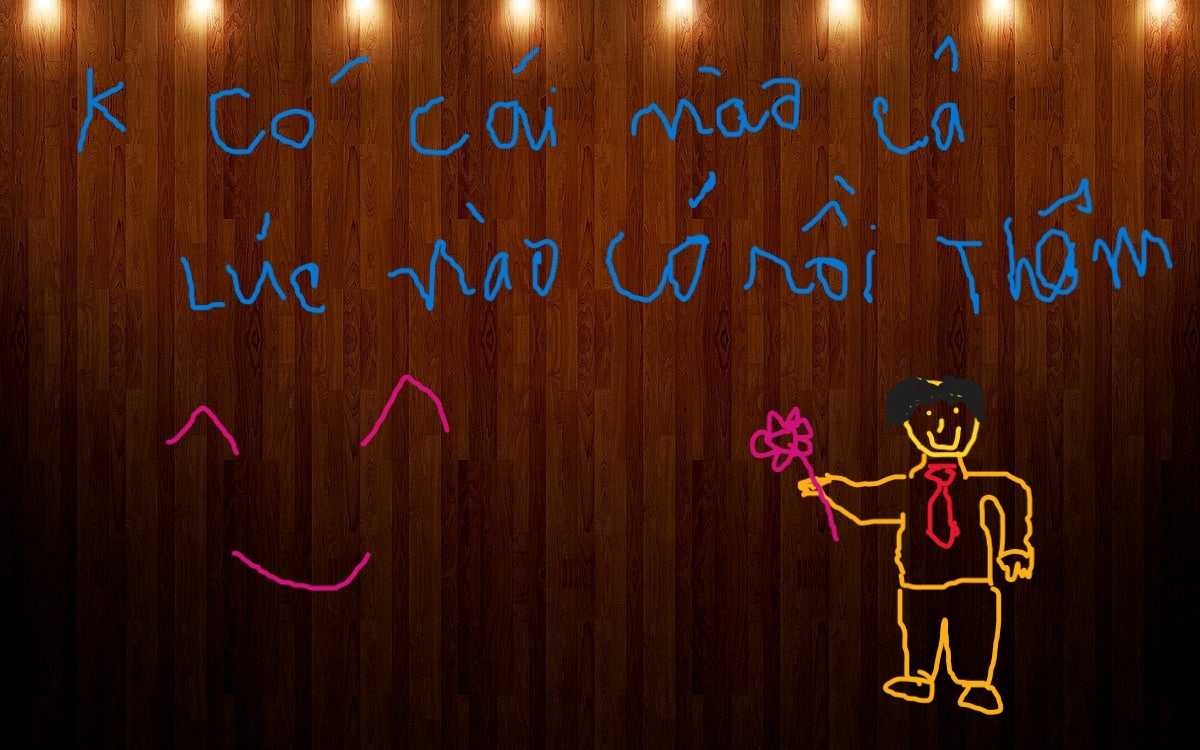 K có cái nào cả
Lúc nào có rồi Thêm